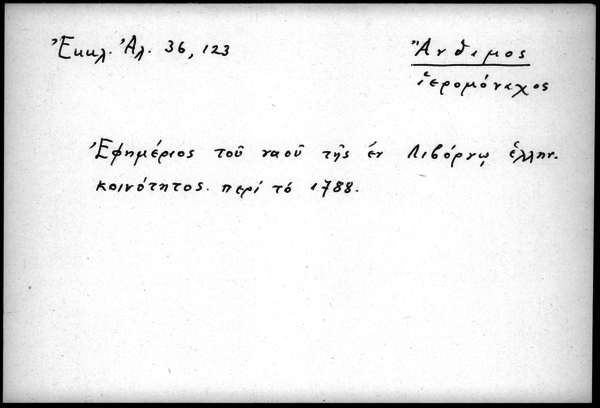 Ἐκκλ. Ἀλ. 36, 123
Ἄνθιμος
ἱερομόναχος
Ἐφημέριος τοῦ ναοῦ τῆς ἐν Λιβόρνῳ ἑλλην.
κοινότητος. περί τό 1788.